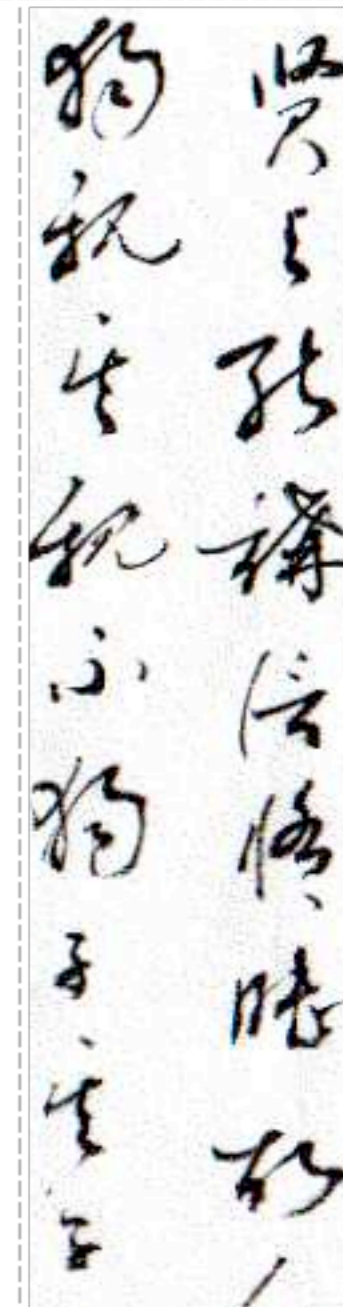 賢與能講信修睦故
獨親其親不獨子其子